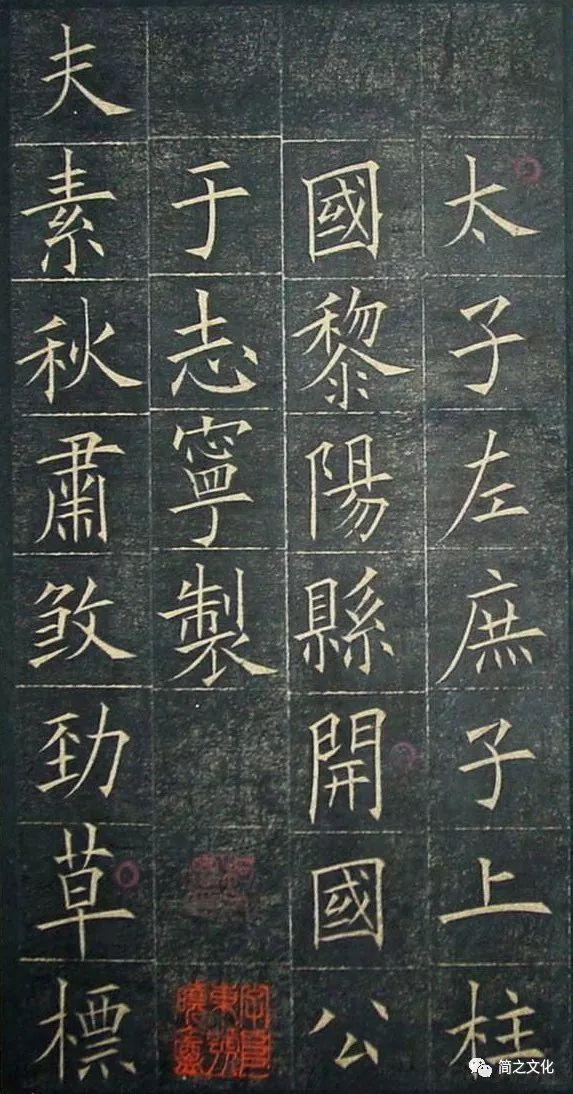 太子左庶子上柱
國黎陽縣開國公
于志寧製
夫素秋肅煞勁草標
简之文化